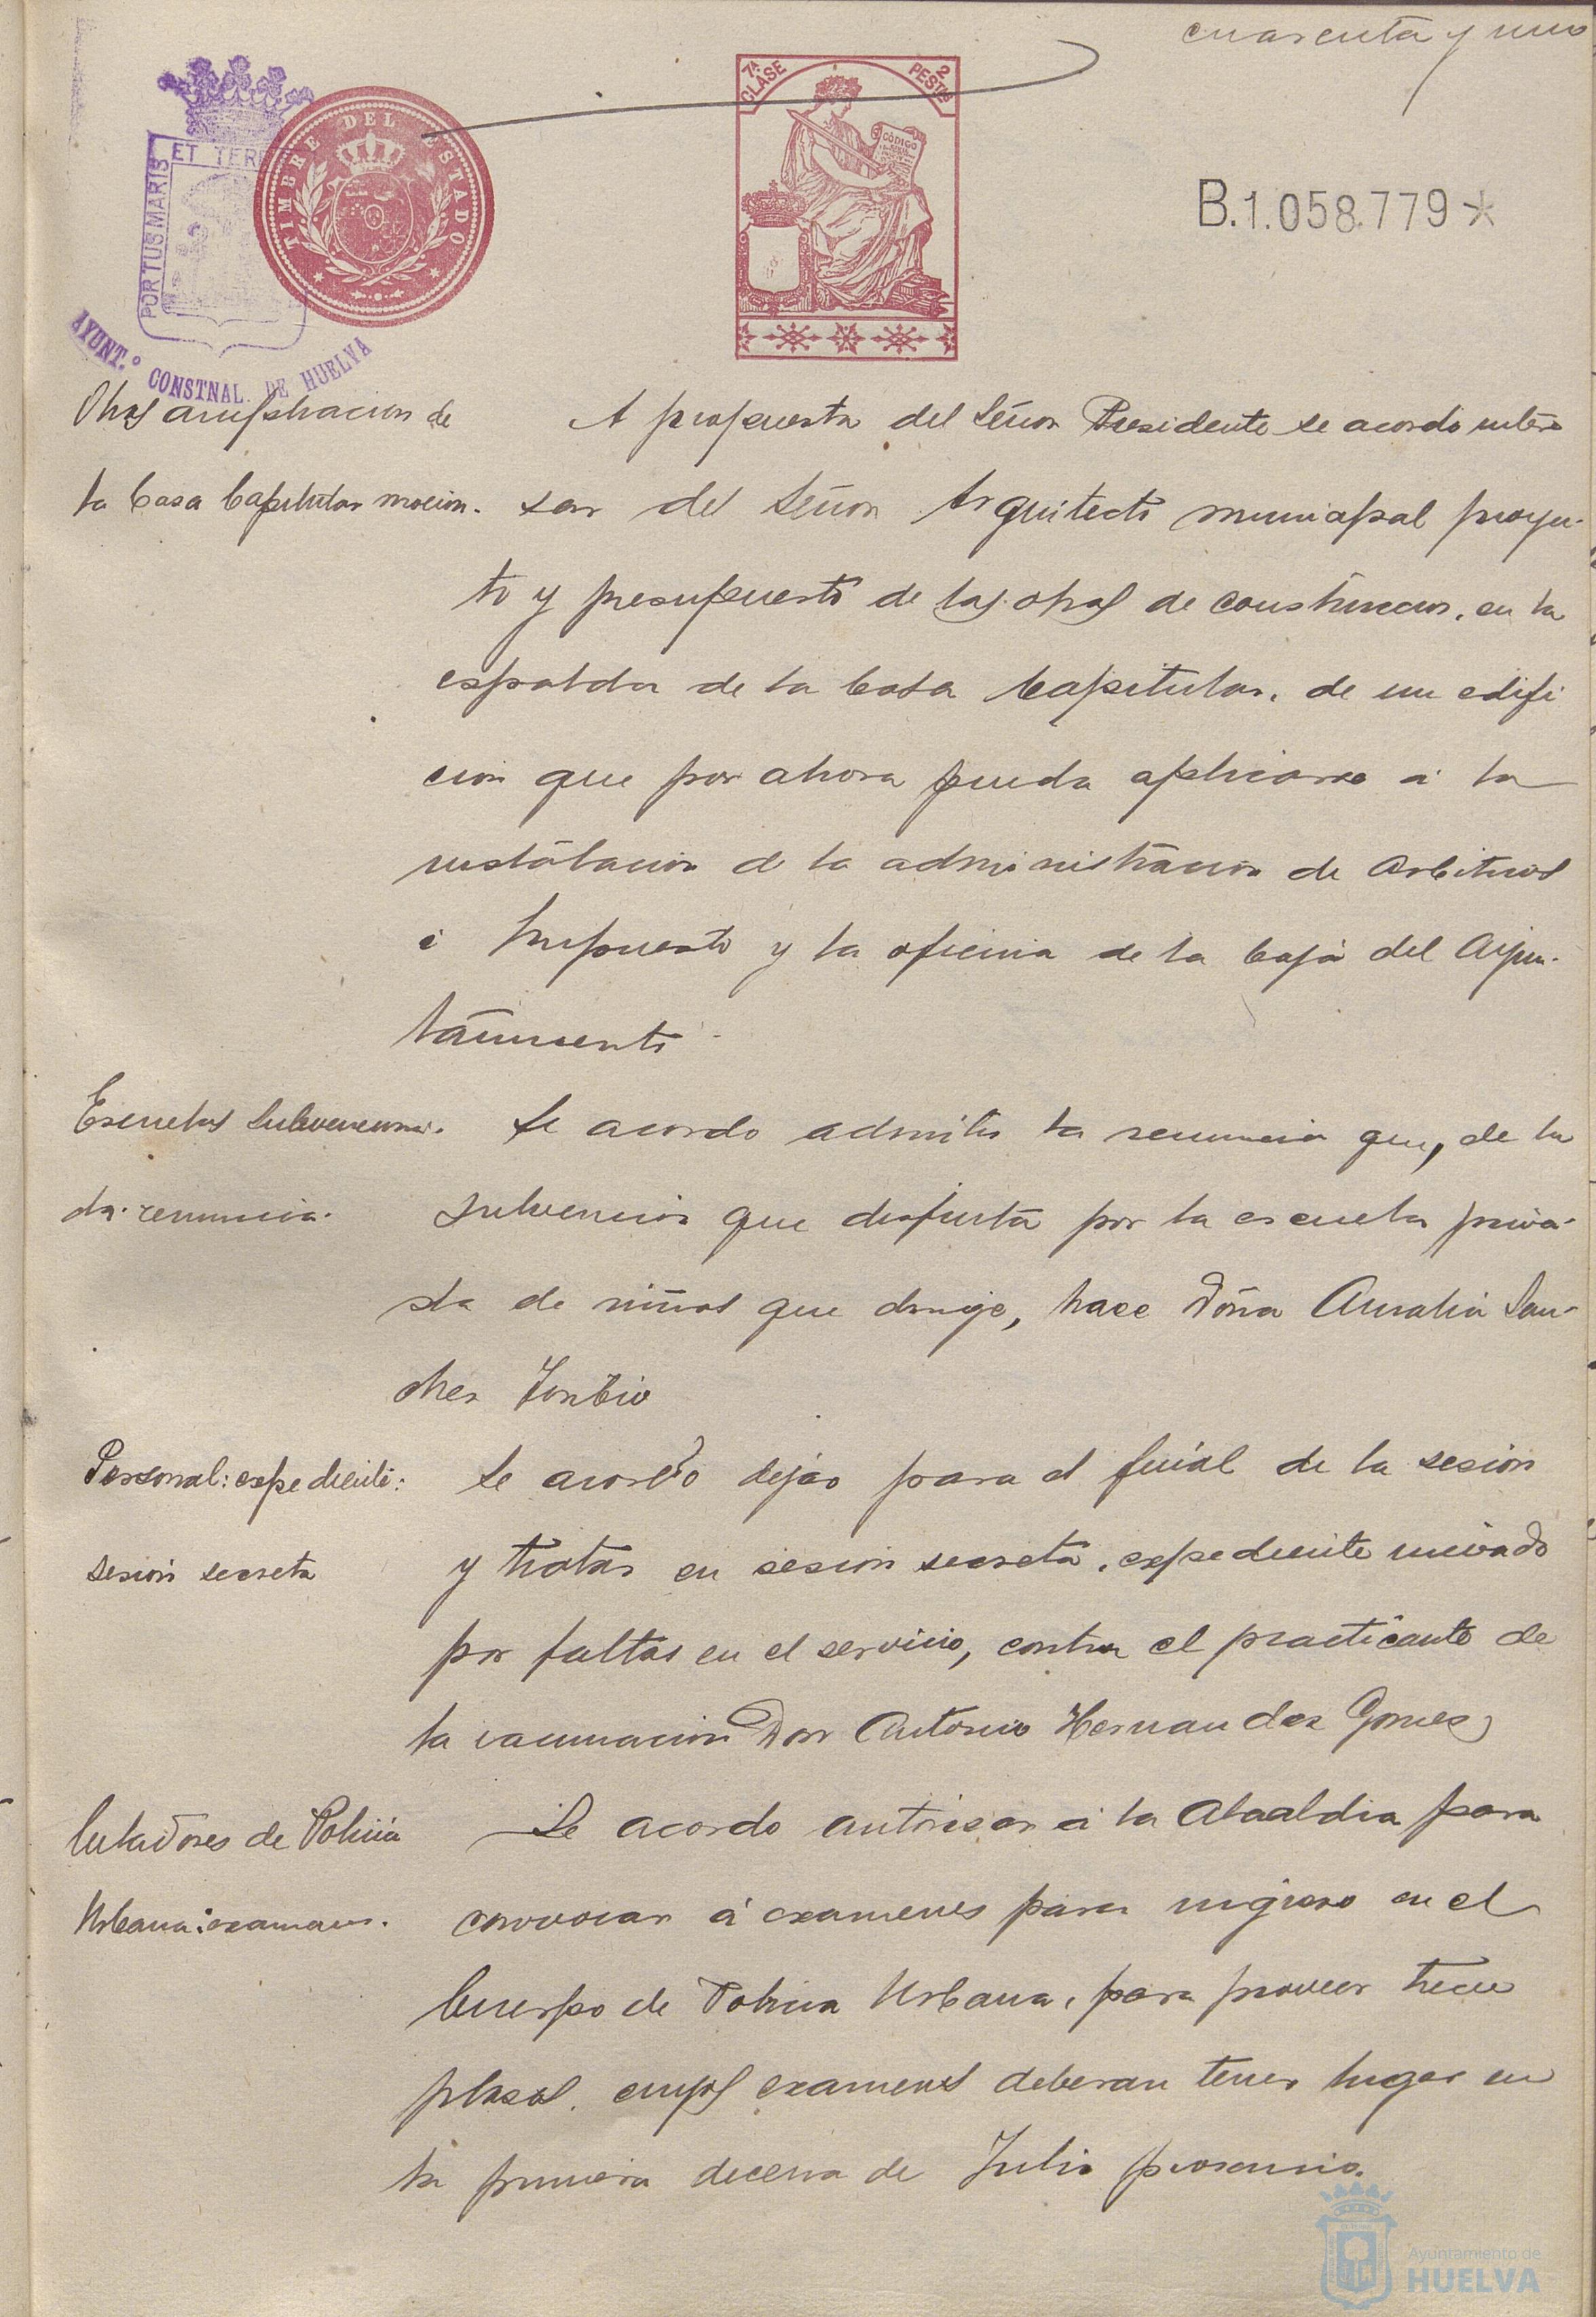 cuarenta y uno
7ª CLASE
2 PESTS
CÓDIGO
TIMBRE DEL ESTADO
PORTUS MARIS ET TERR
AYUNT.º CONSTNAL. DE HUELVA
B.1.058.779*
Obras ampliacion de
la Casa Capitular mocion.
A propuesta del Señor Presidente se acordó intere
sar del Señor Arquitecto municipal proyec-
to y presupuesto de las obras de construccion, en la
espalda de la Casa Capitular, de un edifi
cion que por ahora pueda aplicarse á la
instalacion de la administracion de Arbitrios
é Impuesto y la oficina de la Caja del Ayun-
tamiento
Escuelas subvenciona-
da: renuncia.
Se acordó admitir la renuncia que, de la
subvencion que disfruta por la escuela priva-
da de niños que dirige, hace Doña Amalia San-
chez Toribio
Personal: expediente:
sesion secreta
Se acordó dejar para el final de la sesion
y tratar en sesion secreta, expediente iniciado
por faltas en el servicio, contra el practicante de
la vacunacion Don Antonio Hernandez Gomez
Celadores de Policia
Urbana: examenes.
Se acordó autorizar á la Alcaldia para
convocar á examenes para ingreso en el
Cuerpo de Policia Urbana, para proveer trece
plazas, cuyos examenes deberan tener lugar en
la primera decena de Julio proximo.
Ayuntamiento de
HUELVA